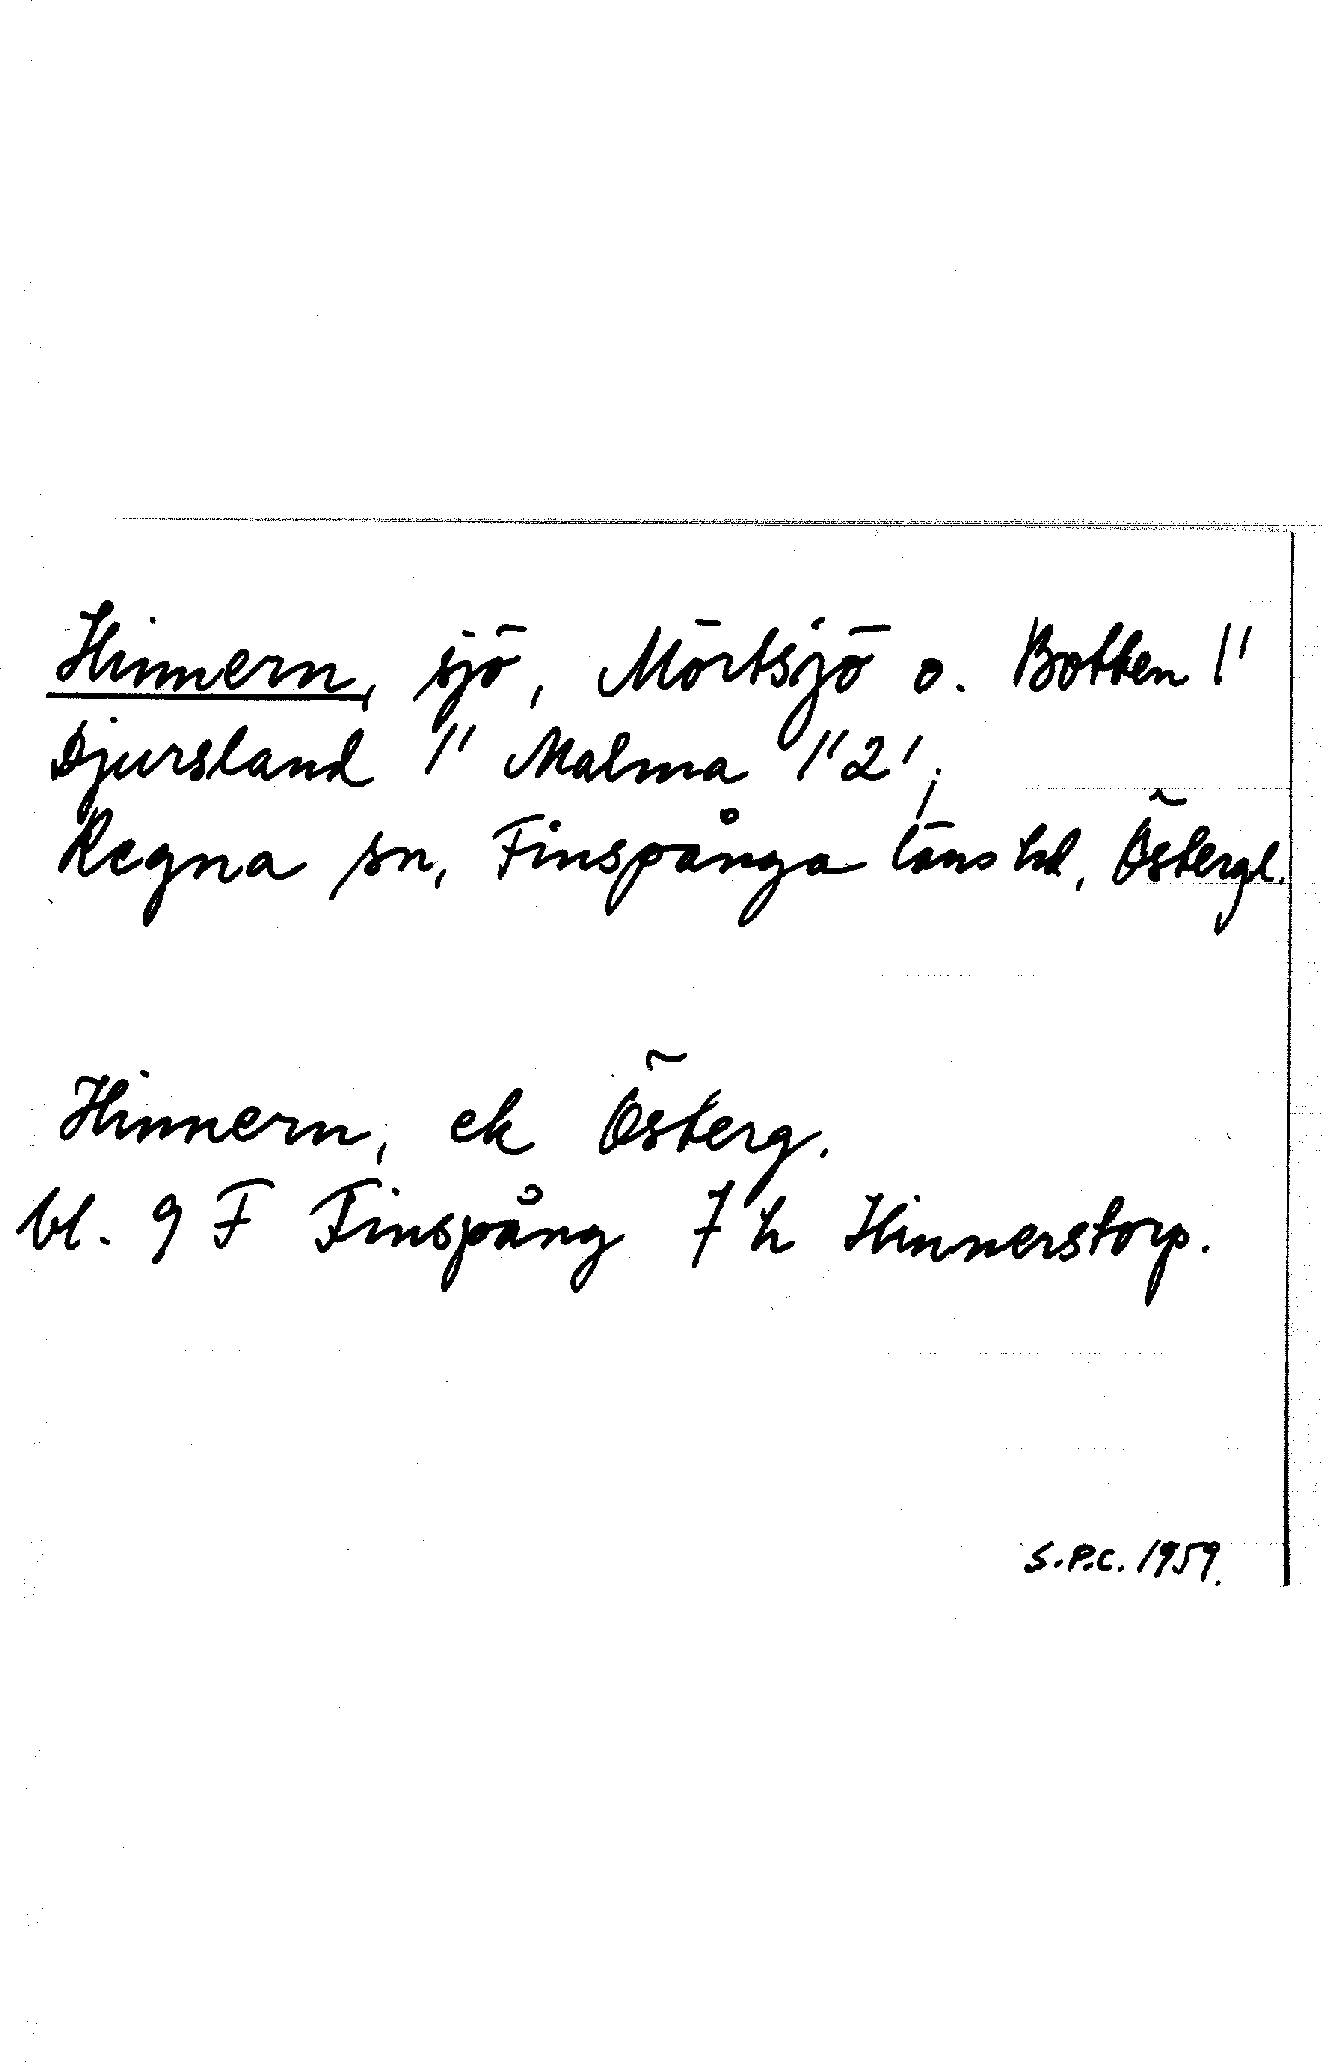 Hinnern, sjö, Mörtsjö o. Botten 1"
Djursland 1" Malma 1"2',
Regna sn, Finspånga läns hd, Östergl.
Hinnern, ek Österg.
bl. 9 F Finspång 7 h Hinnerstorp.
S.P.C. 1959.